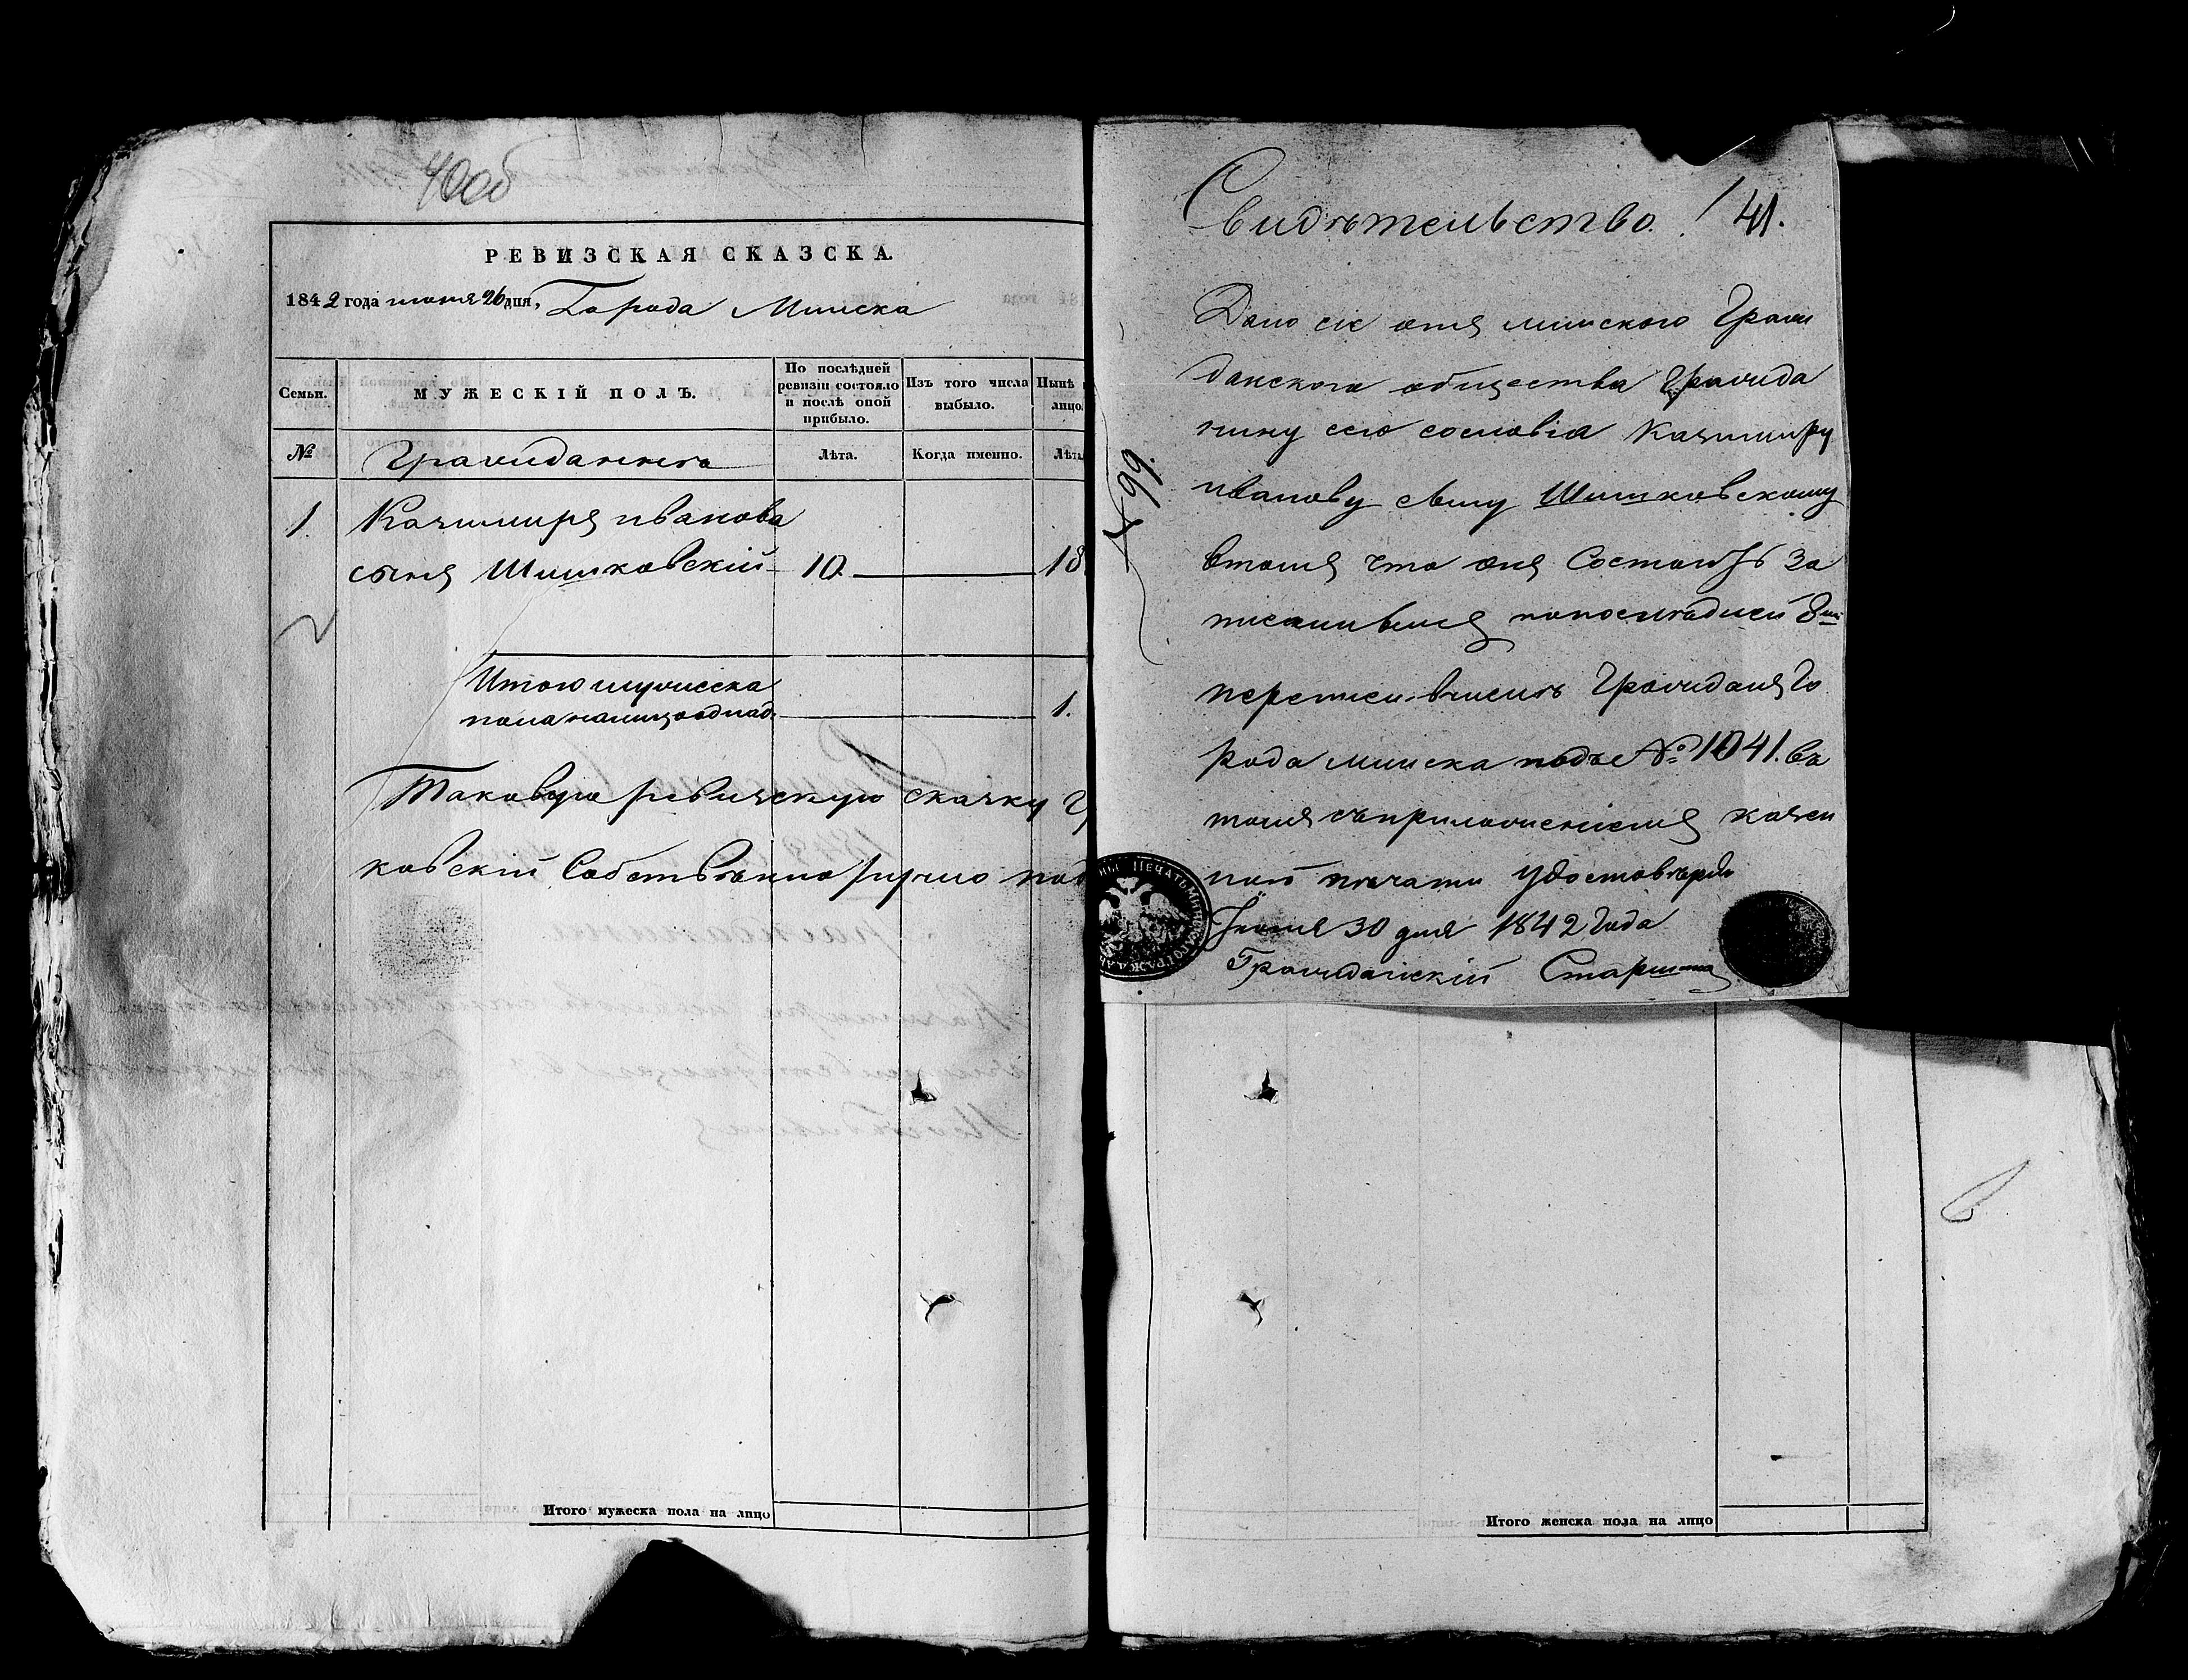 40об
РЕВИЗСКАЯ СКАЗСКА.
1842 года июня 26 дня, Города Минска
Семьи.
МУЖЕСКІЙ ПОЛЪ.
По послѣдней ревизіи состояло и послѣ оной прибыло.
Изъ того числа выбыло.
Нынѣ
лицо.
№
Гражданинъ
Лѣта.
Когда именно.
Лѣта
1. Казимиръ ивановъ
сынъ Шишковскій 10. 18
Итого мужеска
пола налицо одна д. 1.
Таковую ревизскую сказку Г
ковскій Собственноручно под
Итого мужеска пола на лицо
Свидѣтельство. 41.
Дано сіе отъ минского Граж
данского общества Гражда
нину сего сословія Казимиру
иванову сыну Шишковскому
втомъ что онъ Состоитъ За
писаннымъ попослѣдней 8й
переписи вчислѣ Гражданъ Го
рода минска подъ № 1041. въ
томъ съприложеніемъ казен
ной печати Удостовѣряю
Іюня 30 дня 1842 Года
Гражданскій Старшина
499.
Итого женска пола на лицо